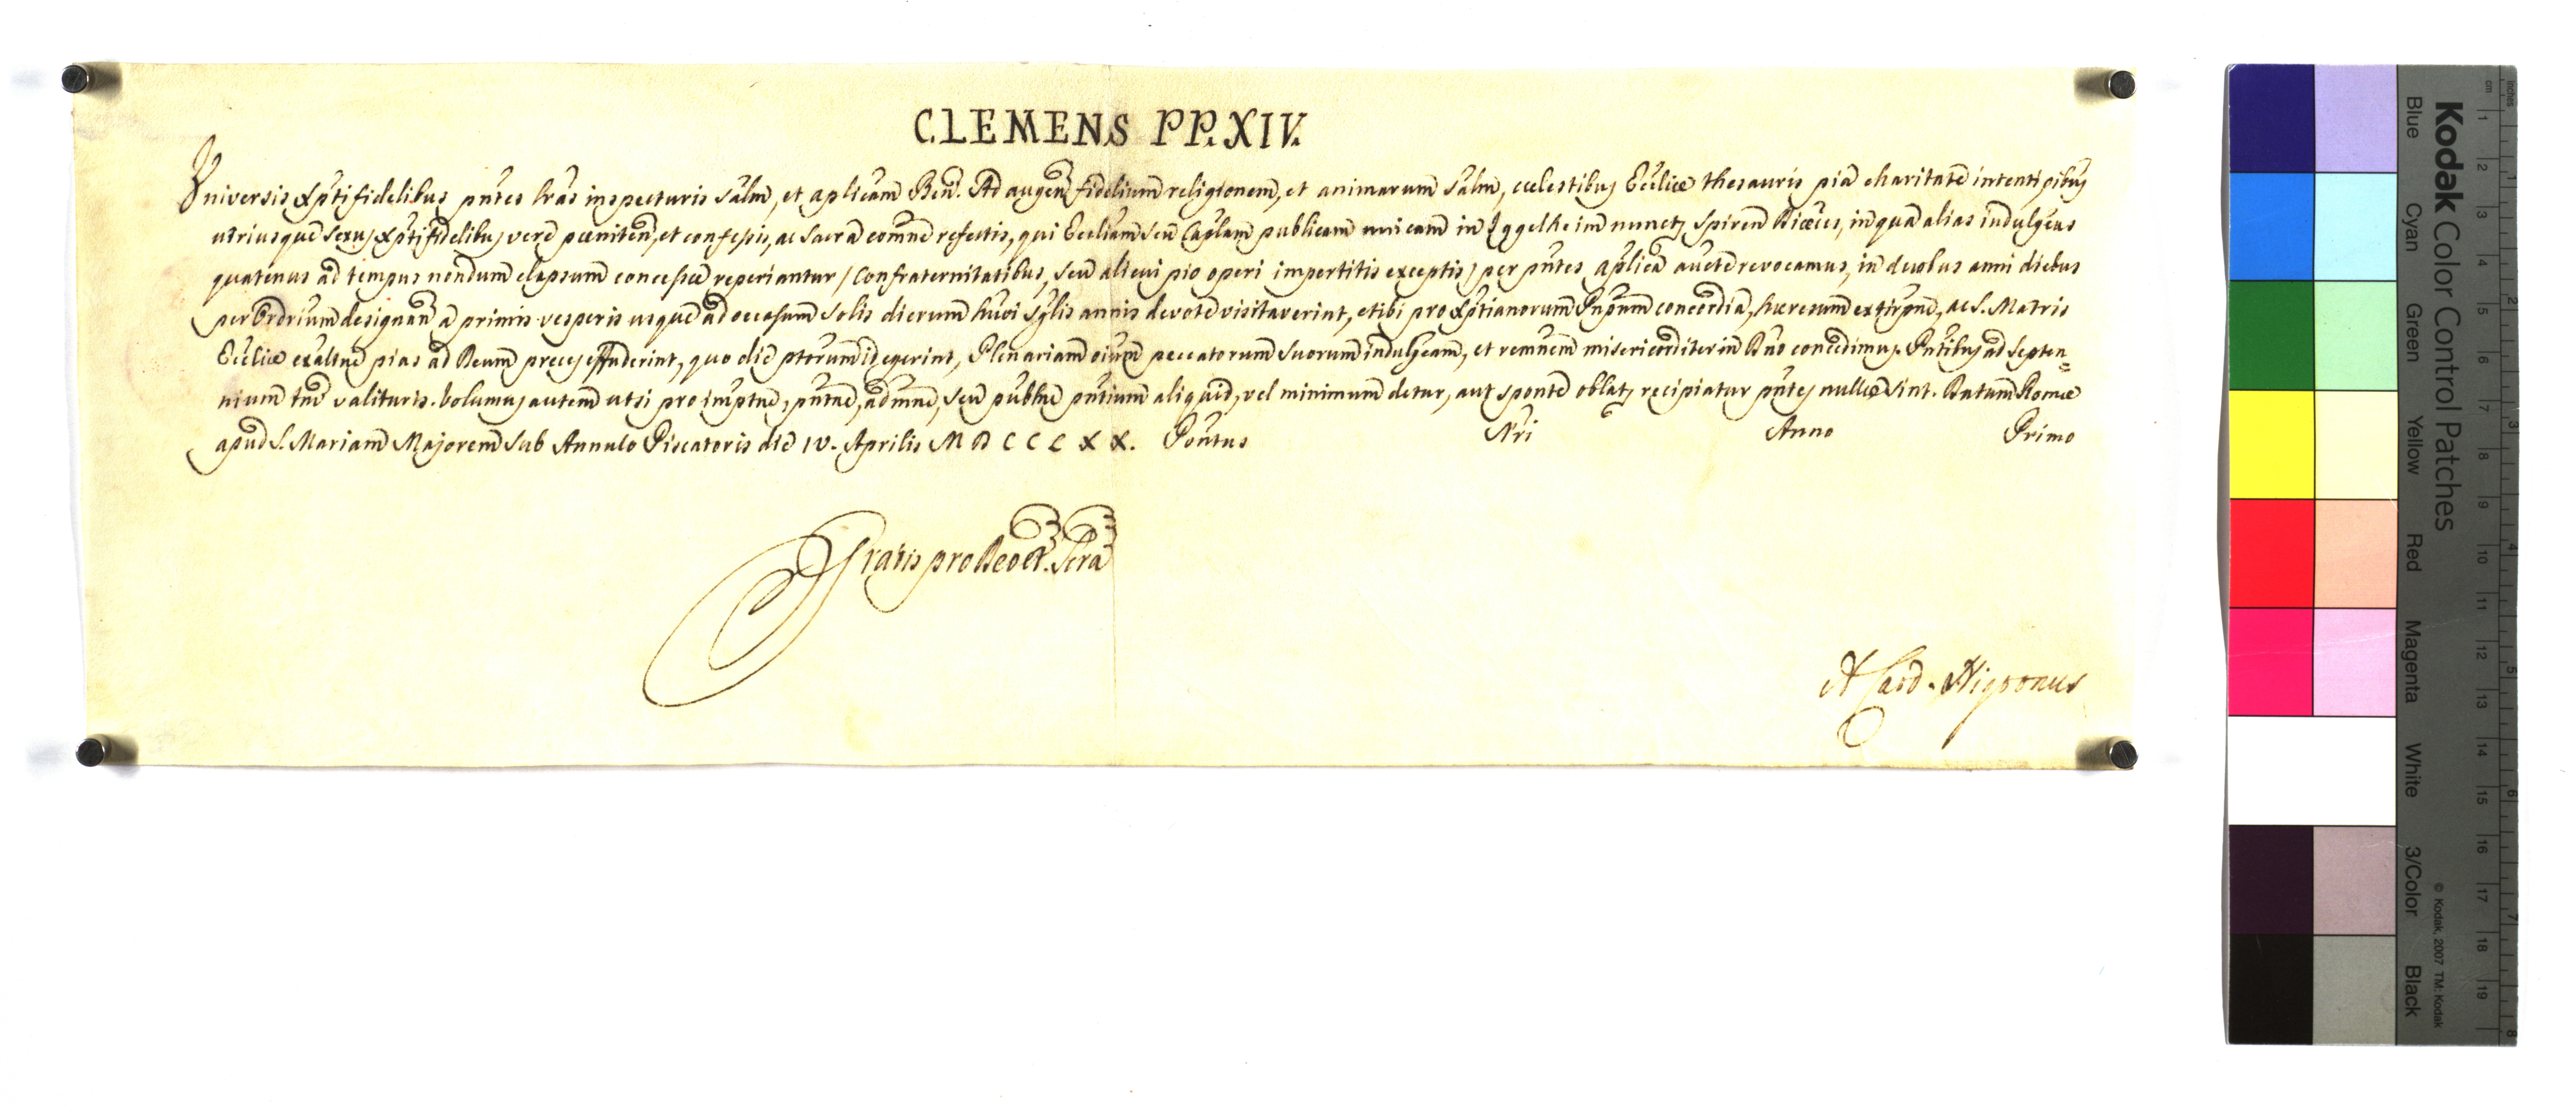 CLEMENS PP. XIV.
Universis Xp̃tifidelibus pñtes lr̃as inspecturis Salm̃, et aplicam̃ Ben̄. Ad augen̄ fidelium religionem, et animarum Salm̃, cœlestibus Eccliæ thesauris pia charitate intenti oĩbus
utriusque sexus Xp̃tifidelibus vere pœniten̄, et confessis, ac Sacra comm̃e refectis, qui Eccliam Seu Caplam publicam unicam in Iggelheim nuncp Spiren̄ Diœces, in qua alias indulg̃eas
quatenus ad tempus nondum elapsum concessæ reperiantur / confraternitatibus, seu alicui pio operi impertitis exceptis / per pñtes aplica auct̃e revocamus, in duobus anni diebus
per Ordrium designan̄ a primis vesperis usque ad occasum Solis dierum huõi Sg̃lis annis devote visitaverint, et ibi pro Xp̃tianorum Pnpum concordia, hæresum extirp̃ne, ac S. Matris
Eccliæ exalt̃ne pias ad Deum preces effuderint, quo die pt̃orum id egerint, Plenariam oĩum peccatorum suorum indulg̃eam, et rem̃nem misericorditer in Dño concedimus. Pñtibus ad Septen=
nium tm̃ valituris. Volumus autem ut si pro imp̃tne, pñtne, adm̃ne, seu publ̃ne pñtium aliquid, vel minimum detur, aut sponte oblatp recipiatur pñtes nullæ sint. Datum Romæ
apud S. Mariam Majorem Sub Annulo Piscatoris die IV. Aprilis M D C C L X X. Pont̃us Nr̃i Anno Primo
Gratis pro Deo et Scra
A Card. Nigronus
Kodak Color Control Patches
Blue Cyan Green Yellow Red Magenta White 3/Color Black
© Kodak, 2007 TM: Kodak
cm 1 2 3 4 5 6 7 8 9 10 11 12 13 14 15 16 17 18 19
inches 1 2 3 4 5 6 7 8